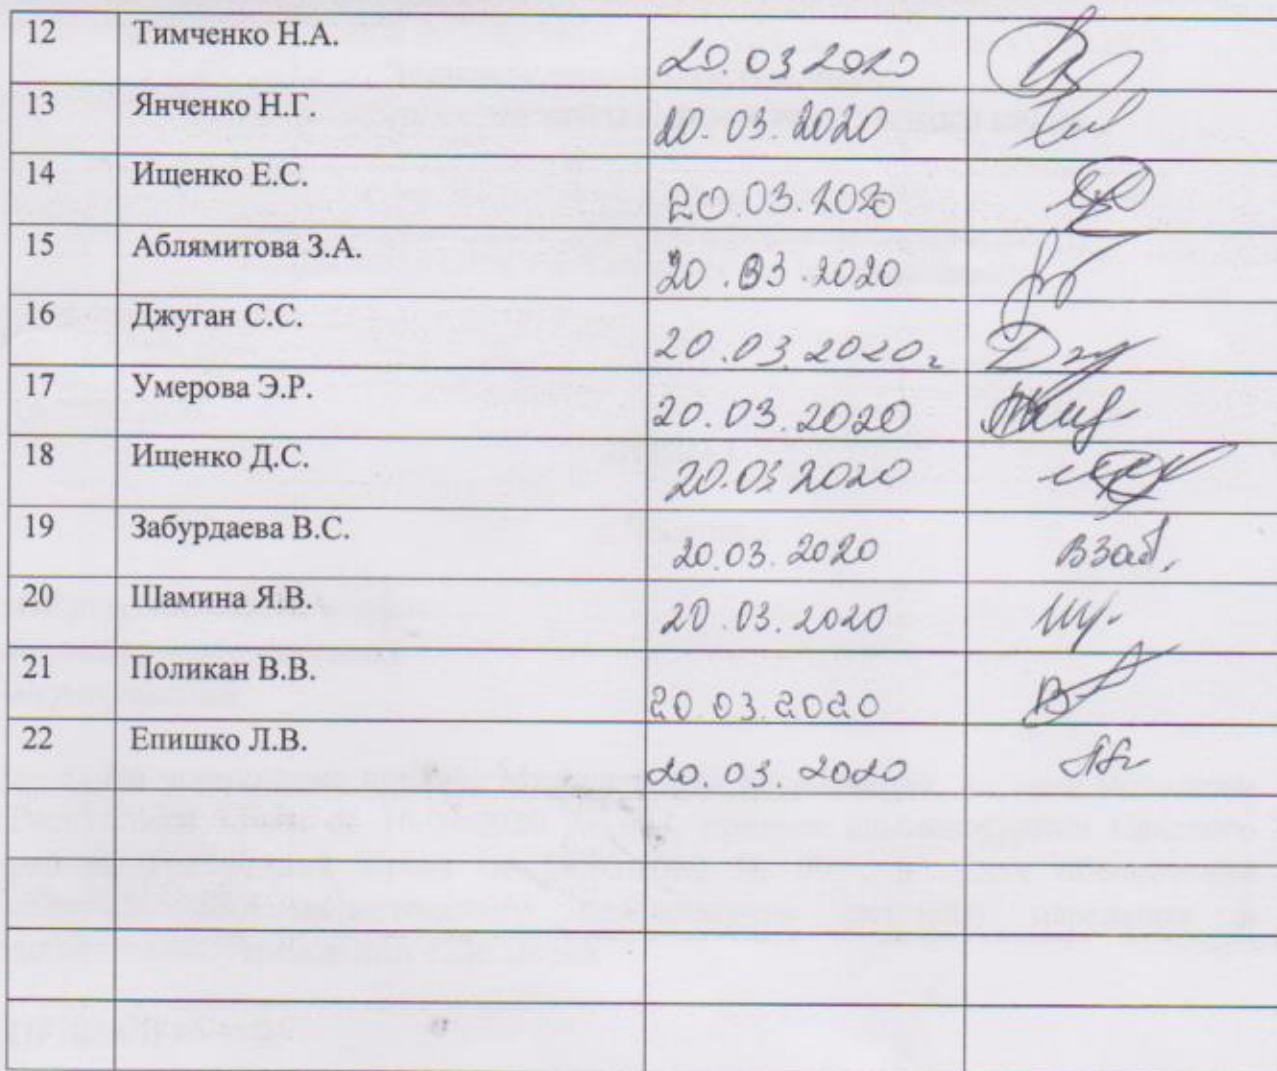 12 Тимченко Н.А. 20.03.2020
13 Янченко Н.Г. 20.03.2020
14 Ищенко Е.С. 20.03.2020
15 Аблямитова З.А. 20.03.2020
16 Джуган С.С. 20.03.2020г
17 Умерова Э.Р. 20.03.2020
18 Ищенко Д.С. 20.03.2020
19 Забурдаева В.С. 20.03.2020 ВЗаб.
20 Шамина Я.В. 20.03.2020
21 Поликан В.В. 20.03.2020
22 Епишко Л.В. 20.03.2020